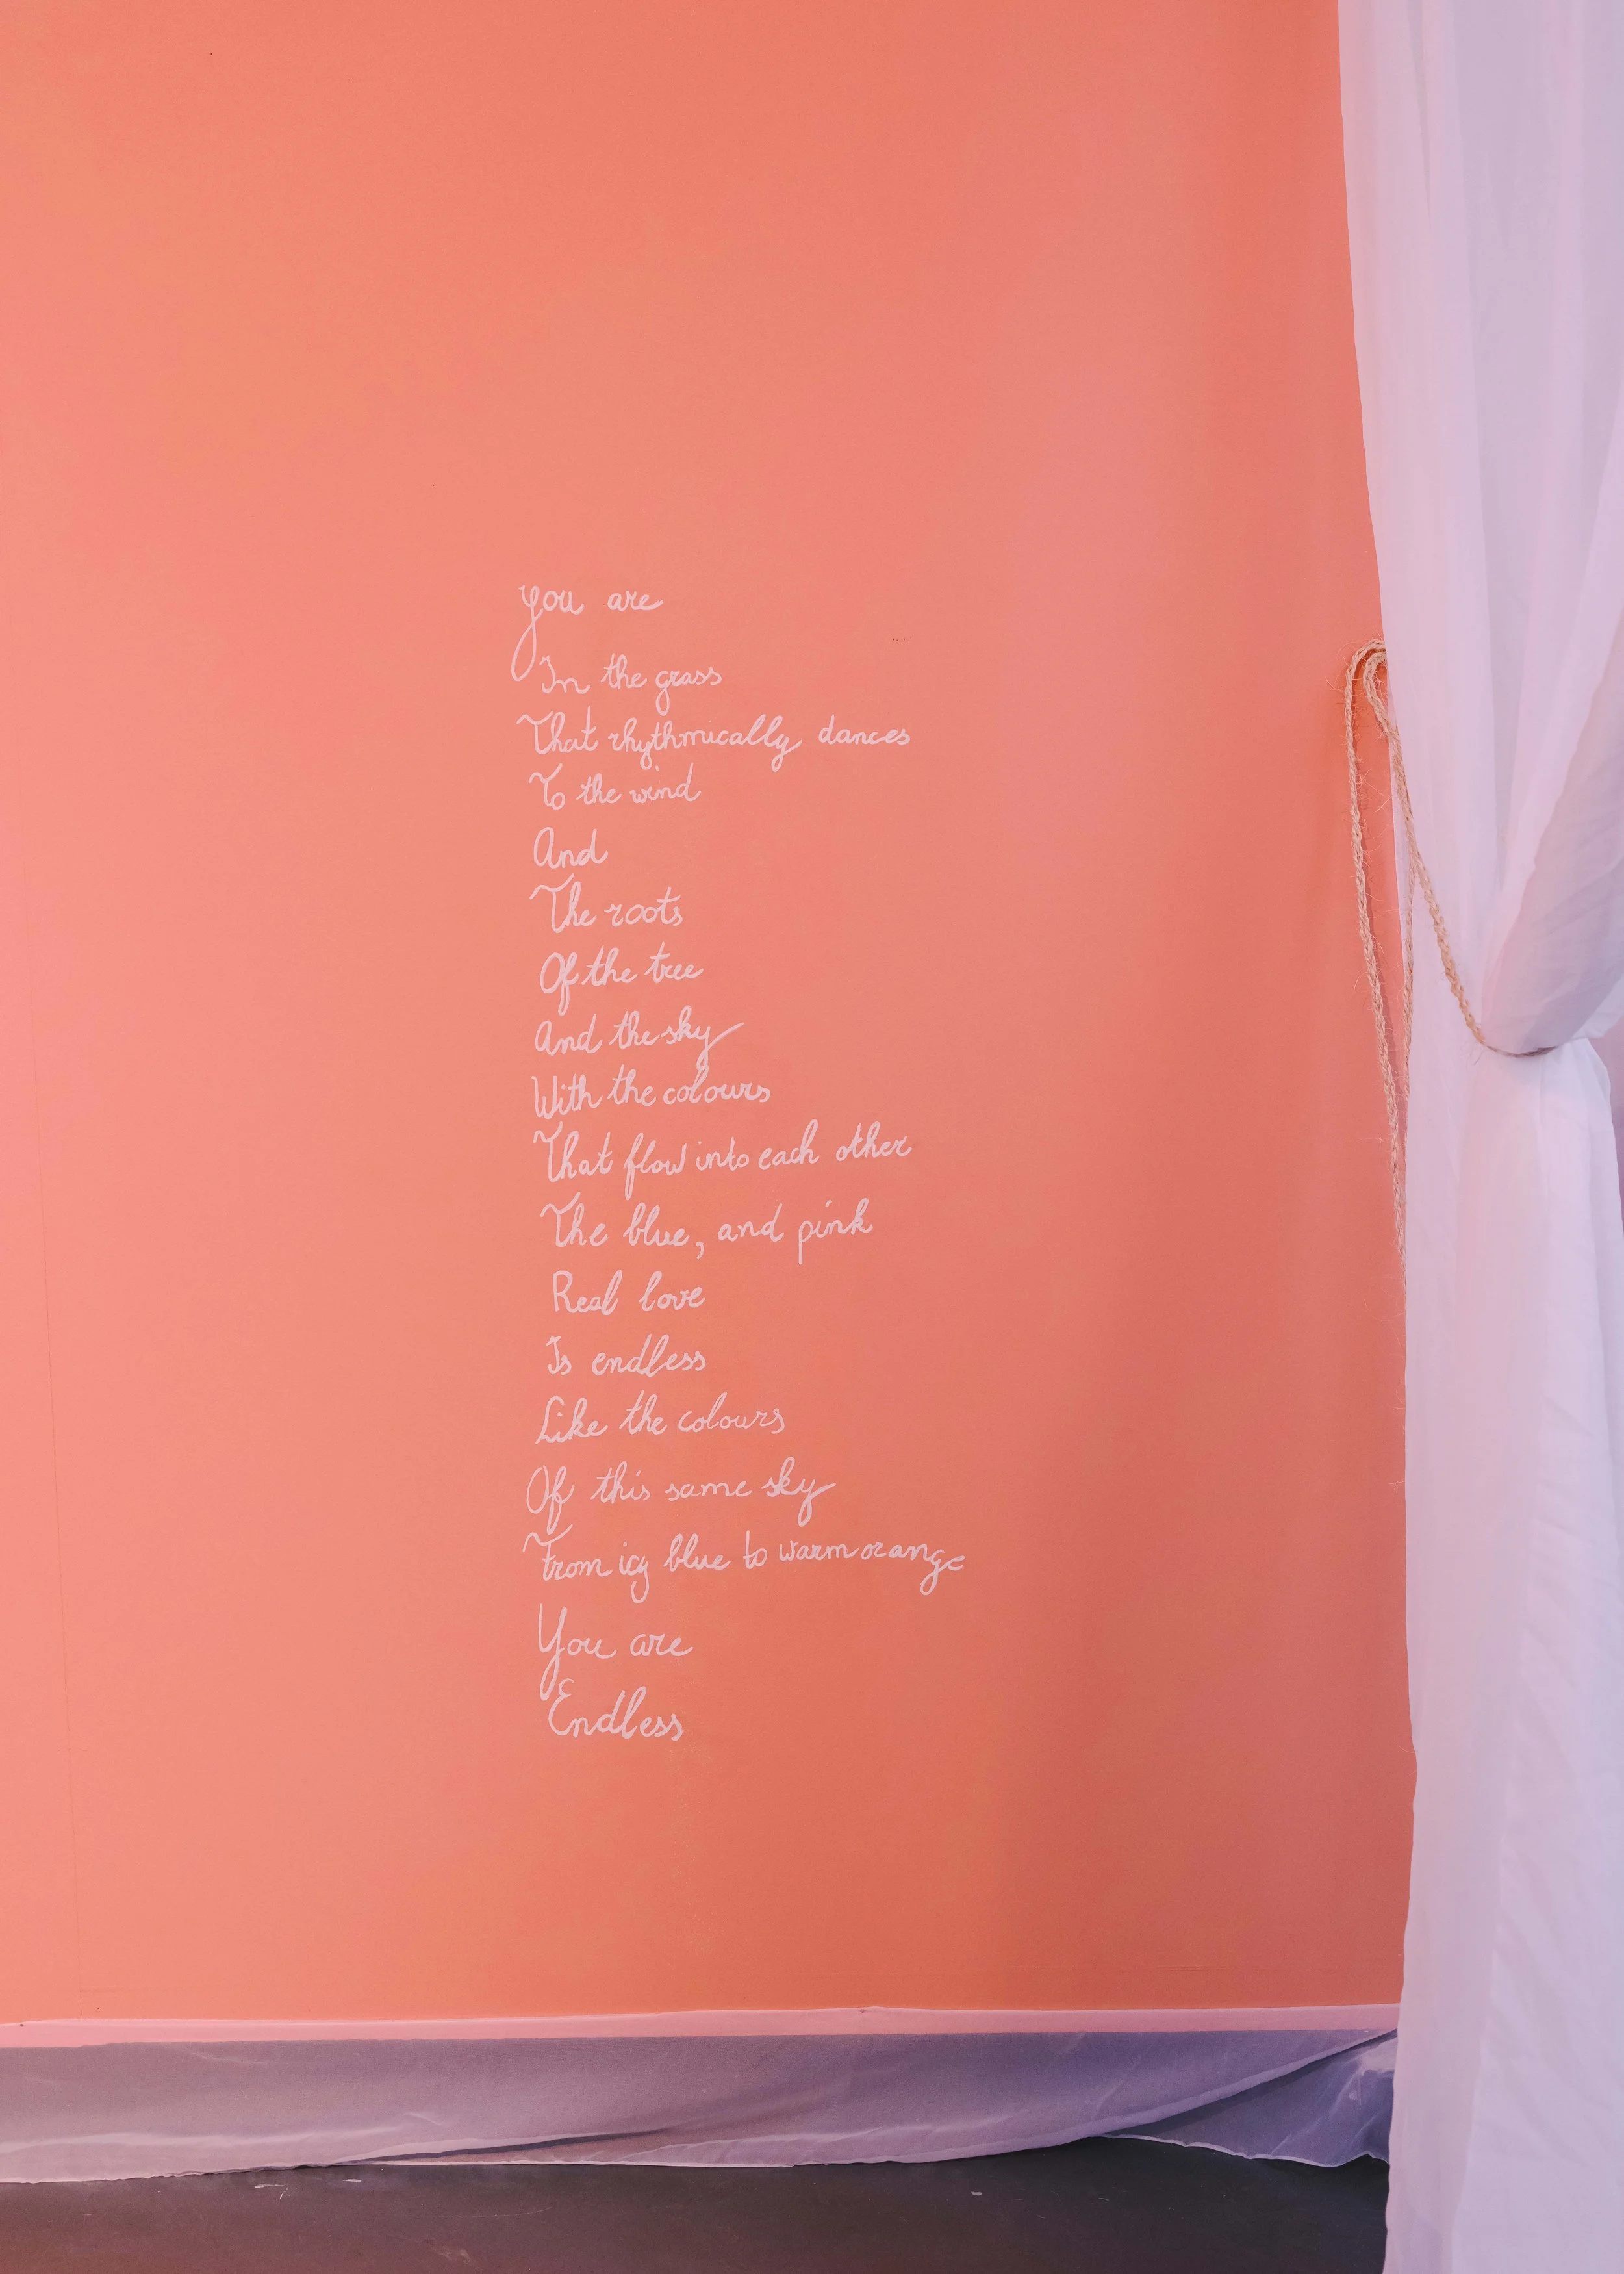 You are
In the grass
That rhythmically dances
To the wind
And
The roots
Of the tree
And the sky
With the colours
That flow into each other
The blue, and pink
Real love
Is endless
Like the colours
Of this same sky
From icy blue to warm orange
You are
Endless